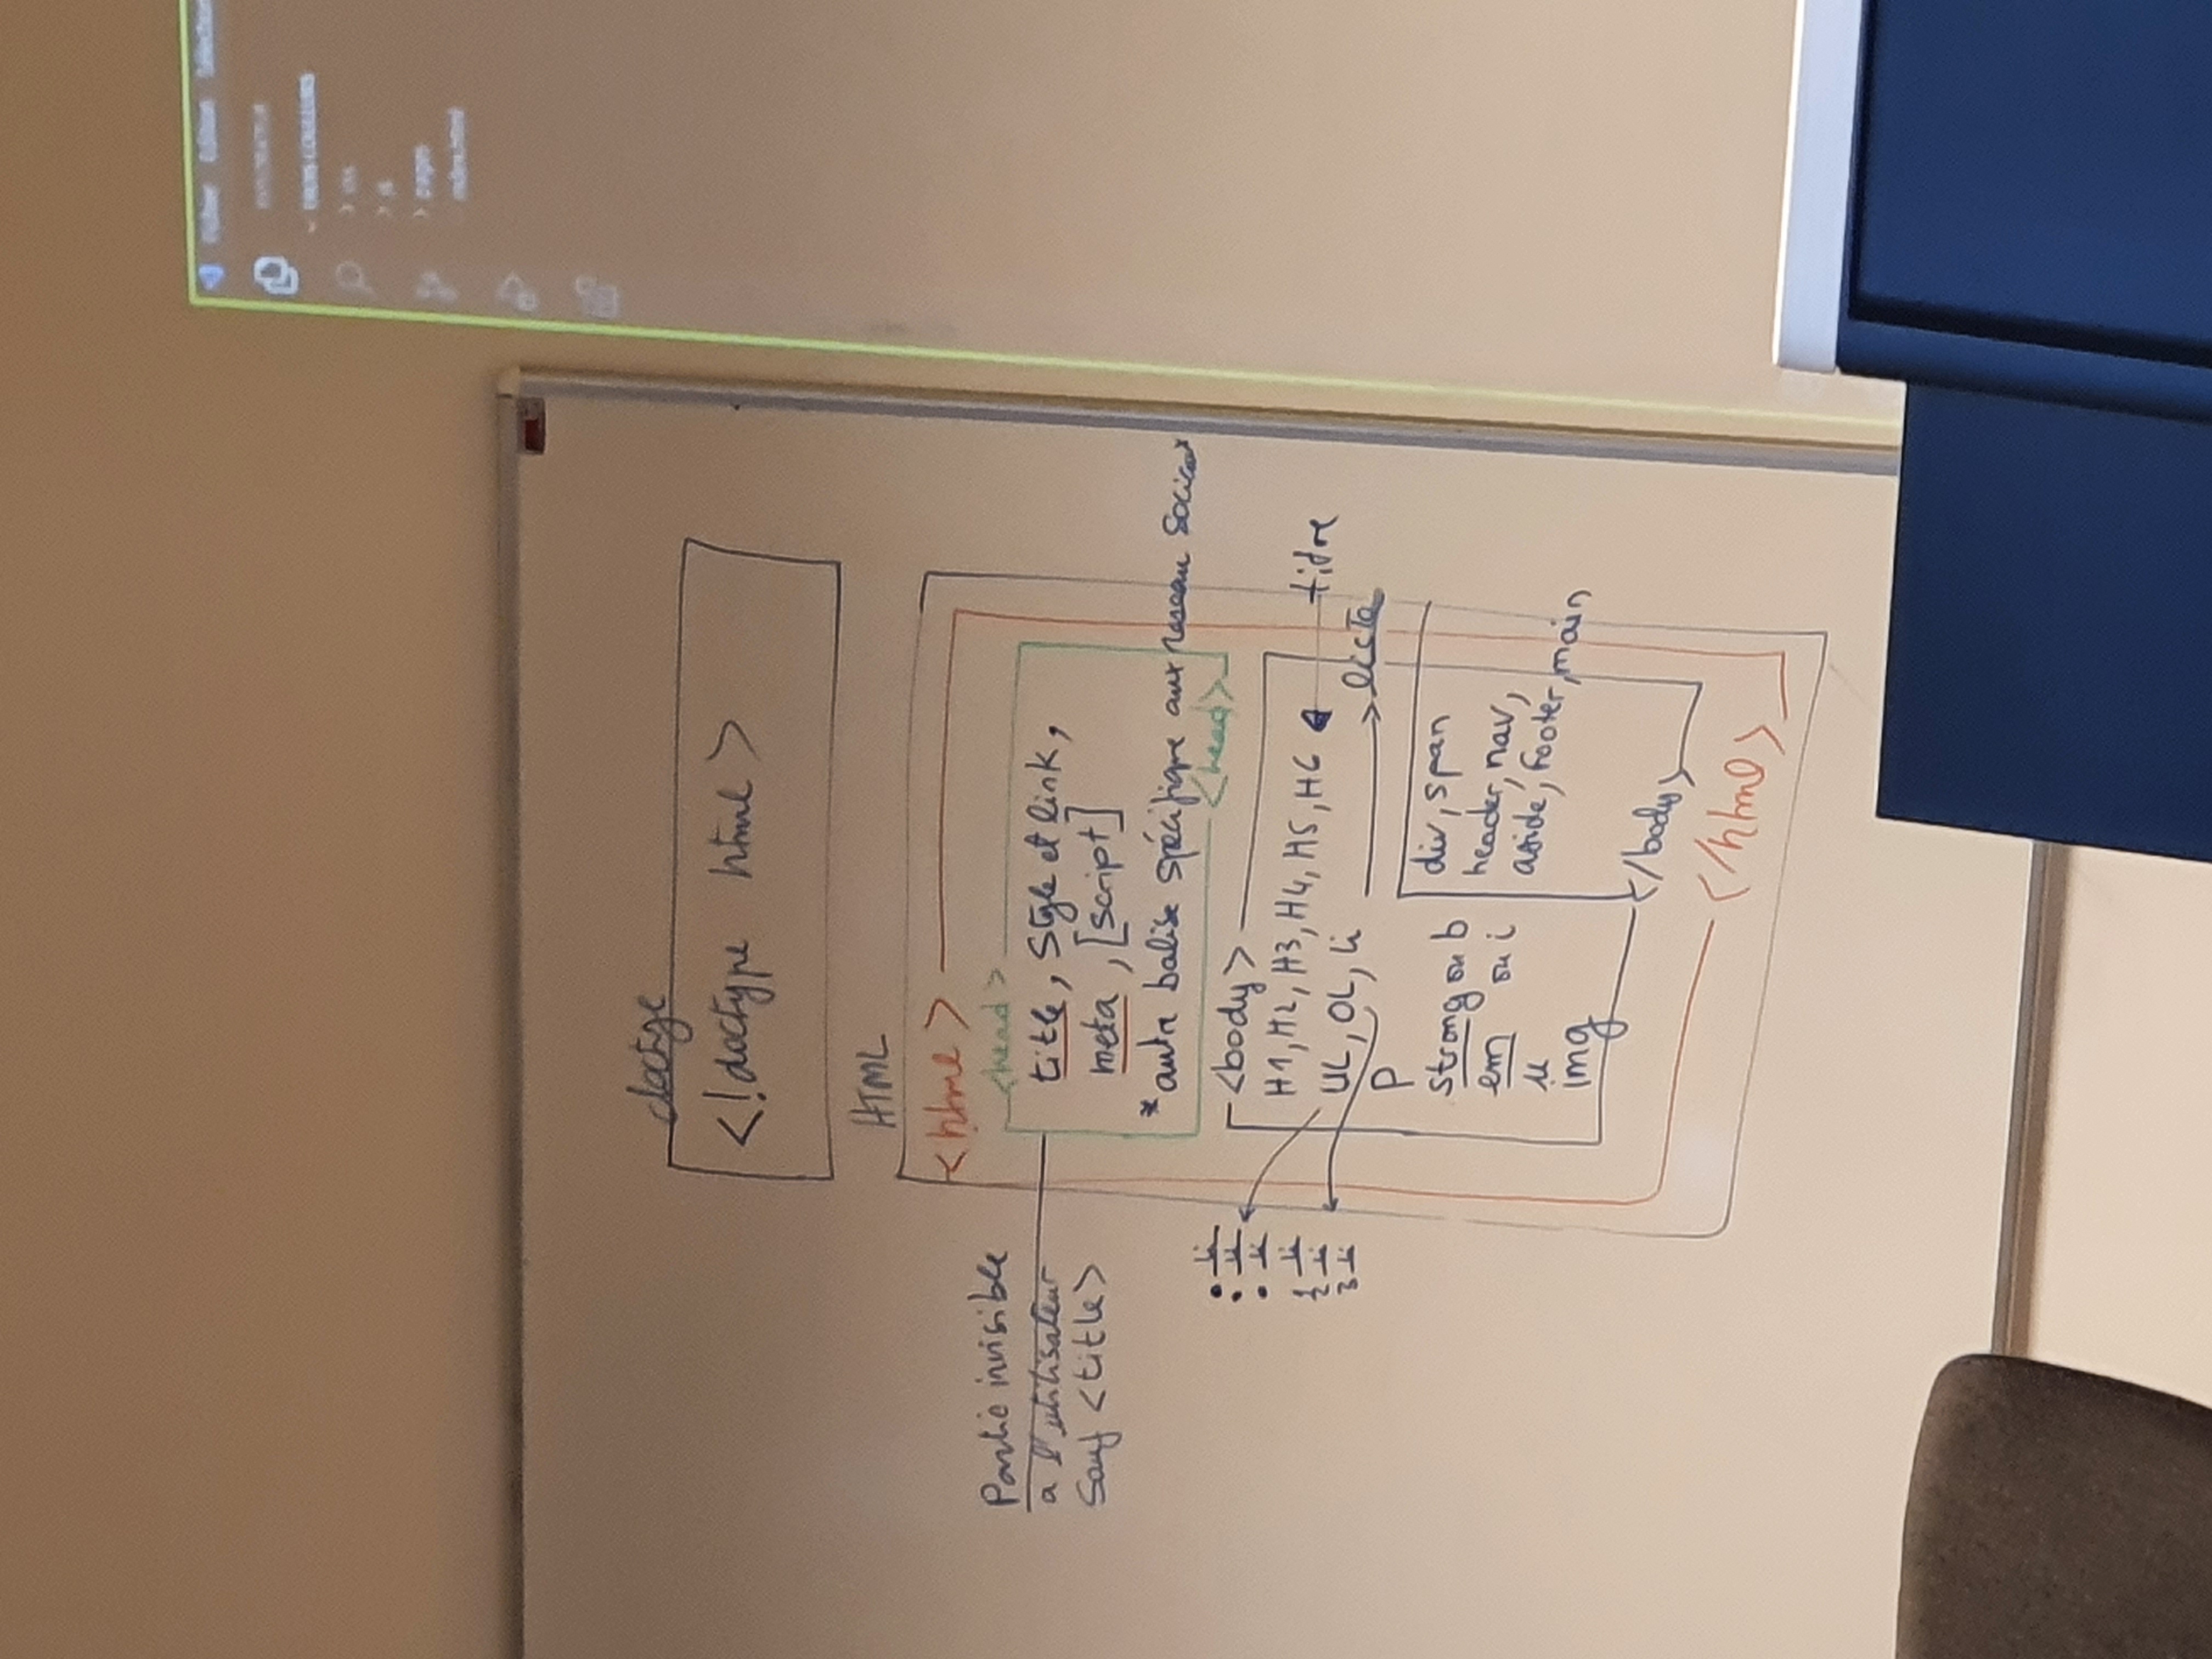 Fichier Edition Sélection
> css
> js
> pages
index.html
doctype
<!doctype html>
HTML
<html>
<head>
Partie invisible
a l'utilisateur
Sauf <title>
title, Style et link,
meta, [script]
*autre balise spécifique aux reseau sociaux
<head>
<body>
H1, H2, H3, H4, H5, H6
titre
UL, OL, li
liste
• li
• li
• li
1 li
2 li
3 li
P
div, span
header, nav,
aside, footer, main
strong ou b
em ou i
u
img
</body>
</html>